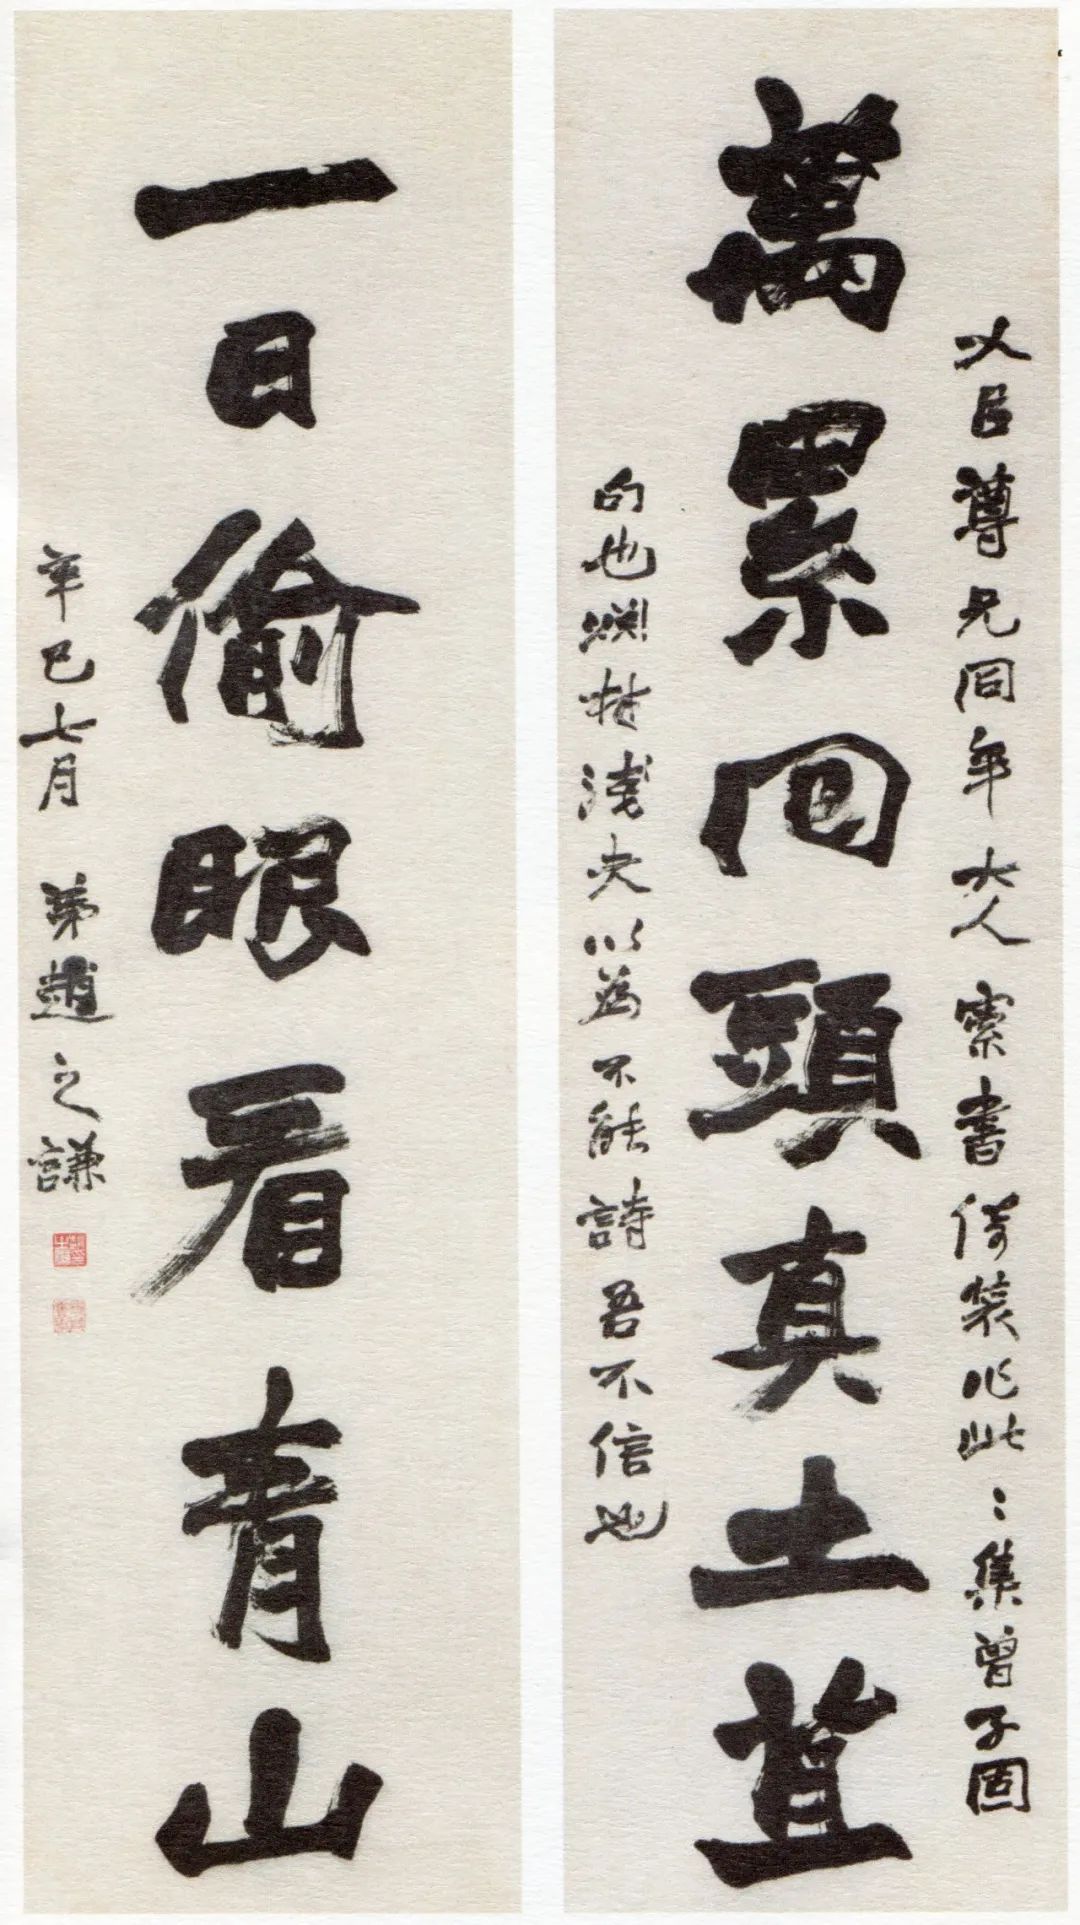 以臣尊兄同年大人索書倚裝作此:集曾子固
萬累回頭真土苴
句也涊材淺夫以為不能詩吾不信也
一日偷眼看青山
辛巳七月 弟趙之謙